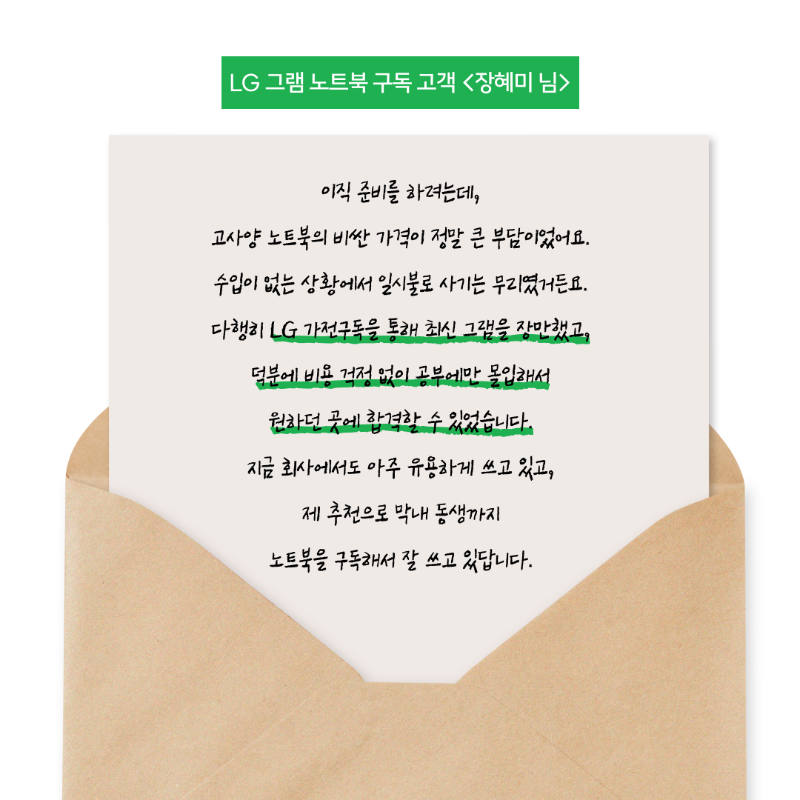 LG 그램 노트북 구독 고객 <장혜미 님>
이직 준비를 하려는데,
고사양 노트북의 비싼 가격이 정말 큰 부담이었어요.
수입이 없는 상황에서 일시불로 사기는 무리였거든요.
다행히 LG 가전구독을 통해 최신 그램을 장만했고,
덕분에 비용 걱정 없이 공부에만 몰입해서
원하던 곳에 합격할 수 있었습니다.
지금 회사에서도 아주 유용하게 쓰고 있고,
제 추천으로 막내 동생까지
노트북을 구독해서 잘 쓰고 있답니다.